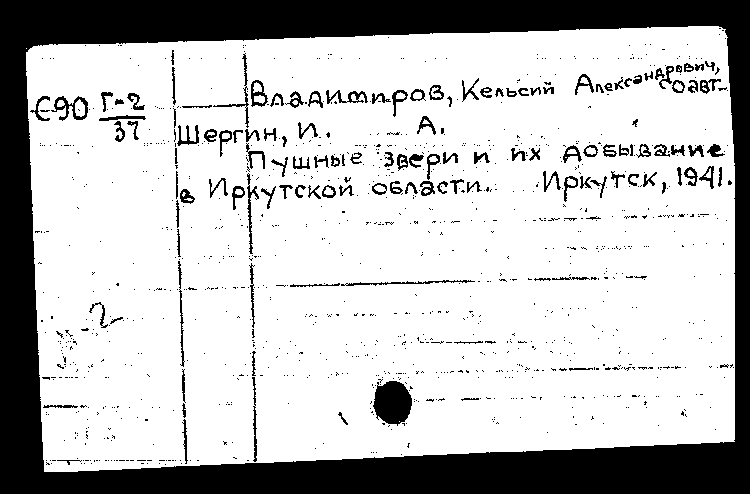 Владимиров, Кельсий Александрович, соавт.
Є90 Г-2
37
Шергин, И. А.
Пушные звери и их добывание
в Иркутской области. Иркутск, 1941.
-2